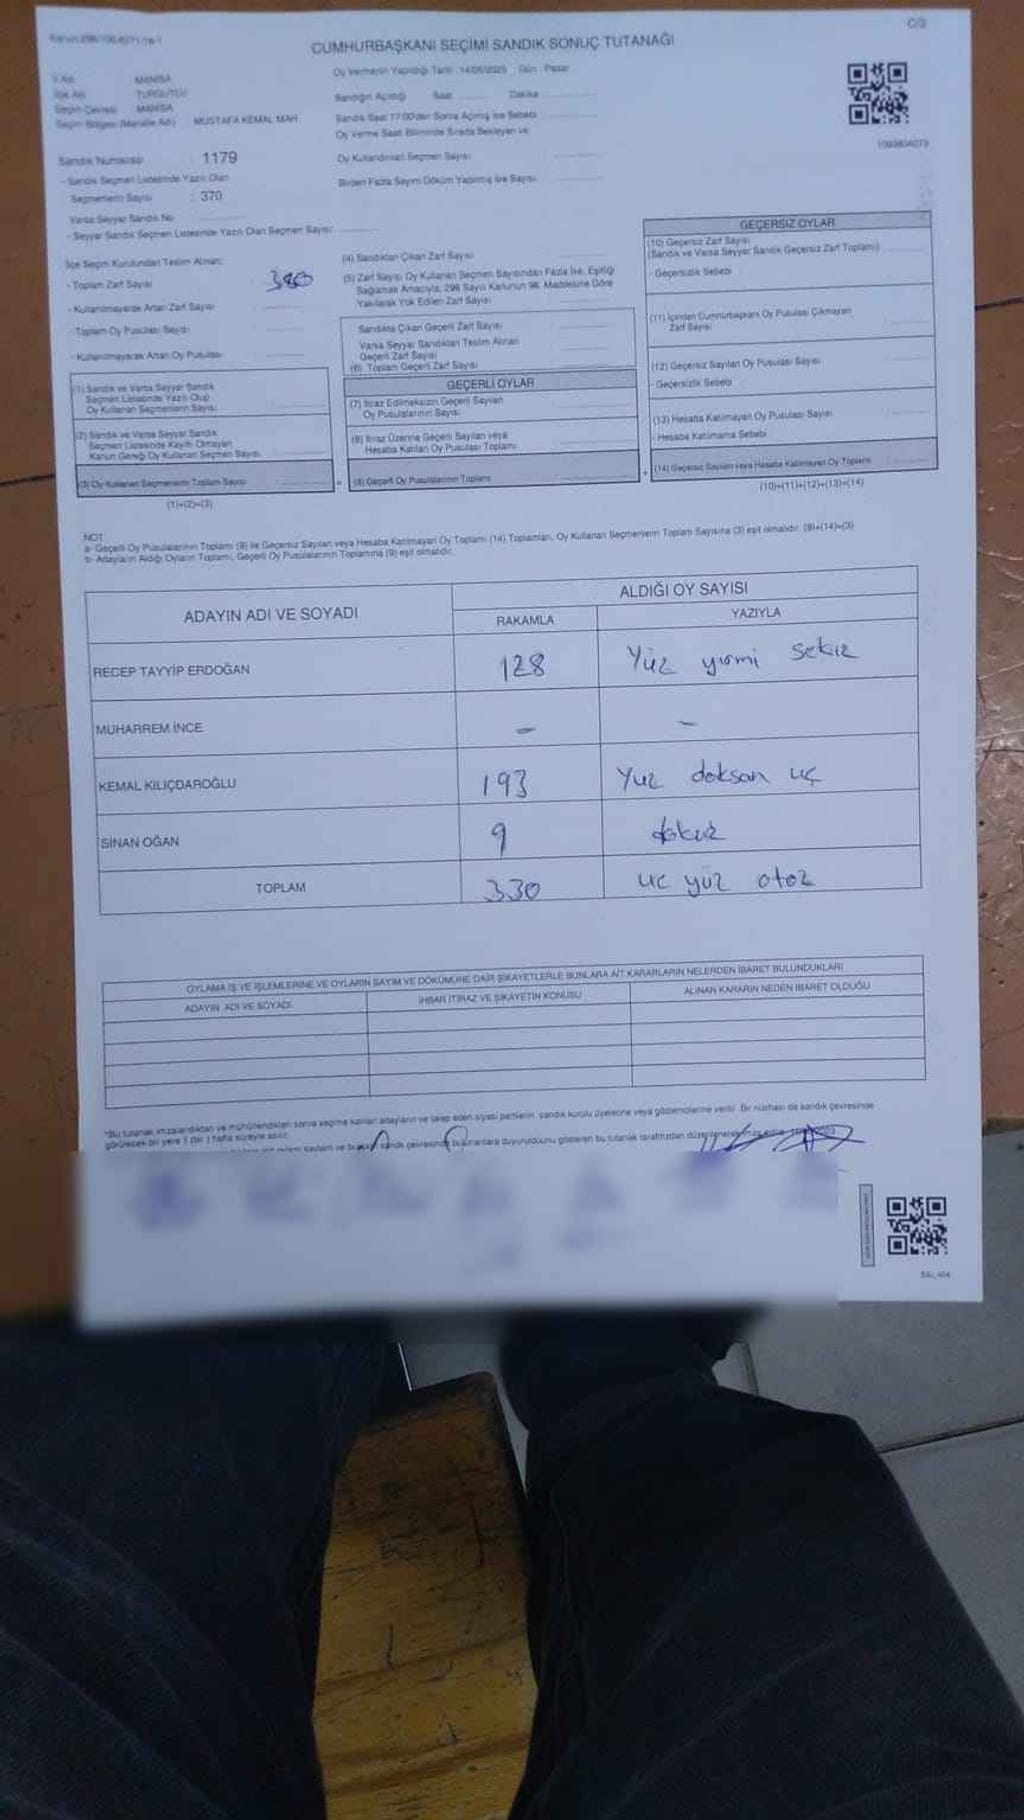 C/3
CUMHURBAŞKANI SEÇİMİ SANDIK SONUÇ TUTANAĞI
Oy Vermenin Yapıldığı Tarih : 14/05/2023 Gün : Pazar
İl Adı MANİSA
İlçe Adı TURGUTLU
Seçim Çevresi MANİSA
Seçim Bölgesi (Mahalle Adı) MUSTAFA KEMAL MAH.
Sandığın Açıldığı Saat Dakika
Sandık Saat 17:00'den Sonra Açılmış İse Sebebi
Oy Verme Saati Bitiminde Sırada Bekleyen ve
Oy Kullandırılan Seçmen Sayısı
Birden Fazla Sayım Döküm Yapılmış İse Sayısı
Sandık Numarası : 1179
- Sandık Seçmen Listesinde Yazılı Olan
Seçmenlerin Sayısı : 370
Varsa Seyyar Sandık No
- Seyyar Sandık Seçmen Listesinde Yazılı Olan Seçmen Sayısı
İlçe Seçim Kurulundan Teslim Alınan;
- Toplam Zarf Sayısı 380
- Kullanılmayarak Artan Zarf Sayısı
- Toplam Oy Pusulası Sayısı
- Kullanılmayarak Artan Oy Pusulası
(1) Sandık ve Varsa Seyyar Sandık
Seçmen Listesinde Yazılı Olup
Oy Kullanan Seçmenlerin Sayısı
(2) Sandık ve Varsa Seyyar Sandık
Seçmen Listesinde Kayıtlı Olmayan
Kanun Gereği Oy Kullanan Seçmen Sayısı
(3) Oy Kullanan Seçmenlerin Toplam Sayısı
(1)+(2)=(3)
(4) Sandıktan Çıkan Zarf Sayısı
(5) Zarf Sayısı Oy Kullanan Seçmen Sayısından Fazla İse, Eşitliği
Sağlamak Amacıyla, 298 Sayılı Kanunun 98. Maddesine Göre
Yakılarak Yok Edilen Zarf Sayısı
Sandıkta Çıkan Geçerli Zarf Sayısı
Varsa Seyyar Sandıktan Teslim Alınan
Geçerli Zarf Sayısı
(6) Toplam Geçerli Zarf Sayısı
GEÇERLİ OYLAR
(7) İtiraz Edilmeksizin Geçerli Sayılan
Oy Pusulalarının Sayısı
(8) İtiraz Üzerine Geçerli Sayılan veya
Hesaba Katılan Oy Pusulası Toplamı
(9) Geçerli Oy Pusulalarının Toplamı
GEÇERSİZ OYLAR
(10) Geçersiz Zarf Sayısı
(Sandık ve Varsa Seyyar Sandık Geçersiz Zarf Toplamı)
- Geçersizlik Sebebi
(11) İçinden Cumhurbaşkanı Oy Pusulası Çıkmayan
Zarf Sayısı
(12) Geçersiz Sayılan Oy Pusulası Sayısı
- Geçersizlik Sebebi
(13) Hesaba Katılmayan Oy Pusulası Sayısı
- Hesaba Katılmama Sebebi
(14) Geçersiz Sayılan veya Hesaba Katılmayan Oy Toplamı
(10)+(11)+(12)+(13)=(14)
NOT:
a- Geçerli Oy Pusulalarının Toplamı (9) ile Geçersiz Sayılan veya Hesaba Katılmayan Oy Toplamı (14) Toplamları, Oy Kullanan Seçmenlerin Toplam Sayısına (3) eşit olmalıdır. (9)+(14)=(3)
b- Adayların Aldığı Oyların Toplamı, Geçerli Oy Pusulalarının Toplamına (9) eşit olmalıdır.
ADAYIN ADI VE SOYADI ALDIĞI OY SAYISI
RAKAMLA YAZIYLA
RECEP TAYYİP ERDOĞAN 128 Yüz yirmi sekiz
MUHARREM İNCE - -
KEMAL KILIÇDAROĞLU 193 Yuz doksan üç
SİNAN OĞAN 9 dokuz
TOPLAM 330 uc yüz otoz
OYLAMA İŞ VE İŞLEMLERİNE VE OYLARIN SAYIM VE DÖKÜMÜNE DAİR ŞİKAYETLERLE BUNLARA AİT KARARLARIN NELERDEN İBARET BULUNDUKLARI
ADAYIN ADI VE SOYADI İHBAR İTİRAZ VE ŞİKAYETİN KONUSU ALINAN KARARIN NEDEN İBARET OLDUĞU
*Bu tutanak imzalandıktan ve mühürlendikten sonra seçime katılan adayların ve talep eden siyasi partilerin, sandık kurulu üyelerine veya gözlemcilerine verilir. Bir nüshası da sandık çevresinde
görülecek bir yere 1 (bir) hafta süreyle asılır.